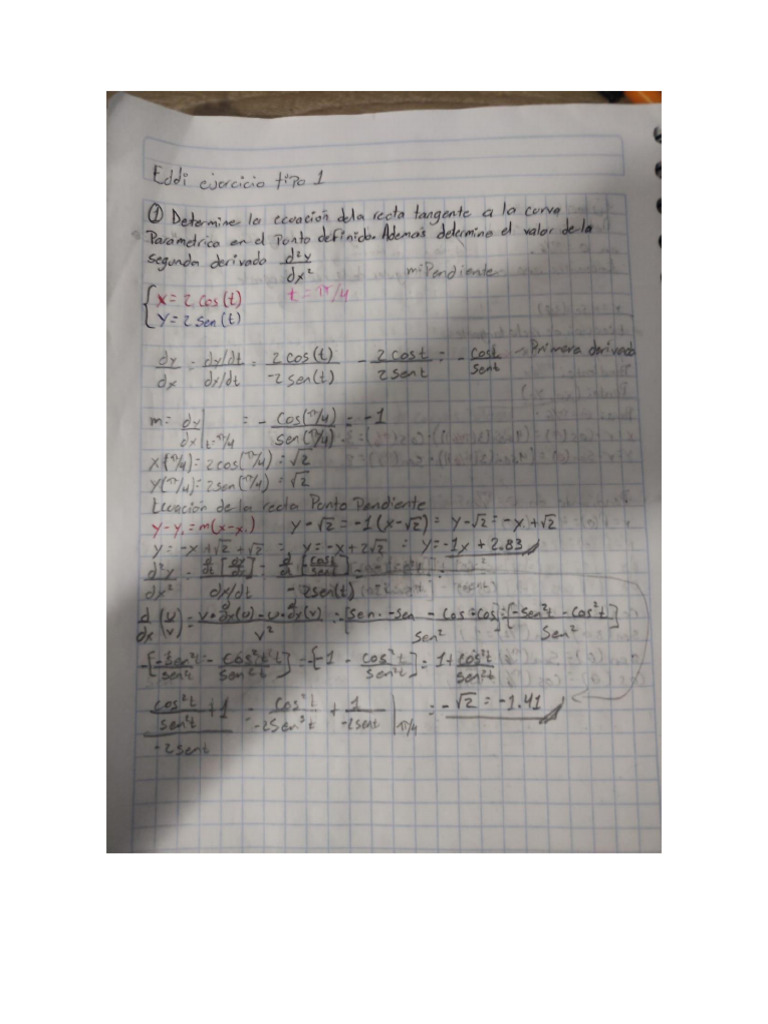 Eddi ejercicio tipo 1
① Determine la ecuación dela recta tangente a la curva
Parametrica en el Ponto definido. Ademas determine el valor de la
segunda derivada d²y/dx²
m: Pendiente
{ x = 2 cos(t)   t = π/4
y = 2 sen(t)
dy/dx = dy/dt / dx/dt = 2 cos(t) / -2 sen(t)   - 2 cost / 2 sent = - cost / sent → Primera derivada
m = dy/dx | t=π/4 = - cos(π/4) / sen(π/4) = -1
x(π/4) = 2cos(π/4) = √2
y(π/4) = 2sen(π/4) = √2
Ecuación de la recta Ponto Pendiente
y-y₁ = m(x-x₁)   y-√2 = -1(x-√2) = y-√2 = -x+√2
y = -x+√2+√2 = y = -x+2√2 = y = -1x + 2.83
d²y/dx² = d/dt [dy/dx] / dx/dt = d/dt [-cost/sent] / -2sen(t) =
d/dx (u/v) = v · d/dx(u) - u · d/dx(v) / v² = [sen · -sen - cos · cos] / sen² = [-sen²t - cos²t] / sen²
-[-sen²t / sen²t - cos²t / sen²t] = -[-1 - cos²t / sen²t] = 1 + cos²t / sen²t
cos²t / sen²t + 1 / -2sent = cos²t / -2sen³t + 1 / -2sent | π/4 = -√2 = -1.41